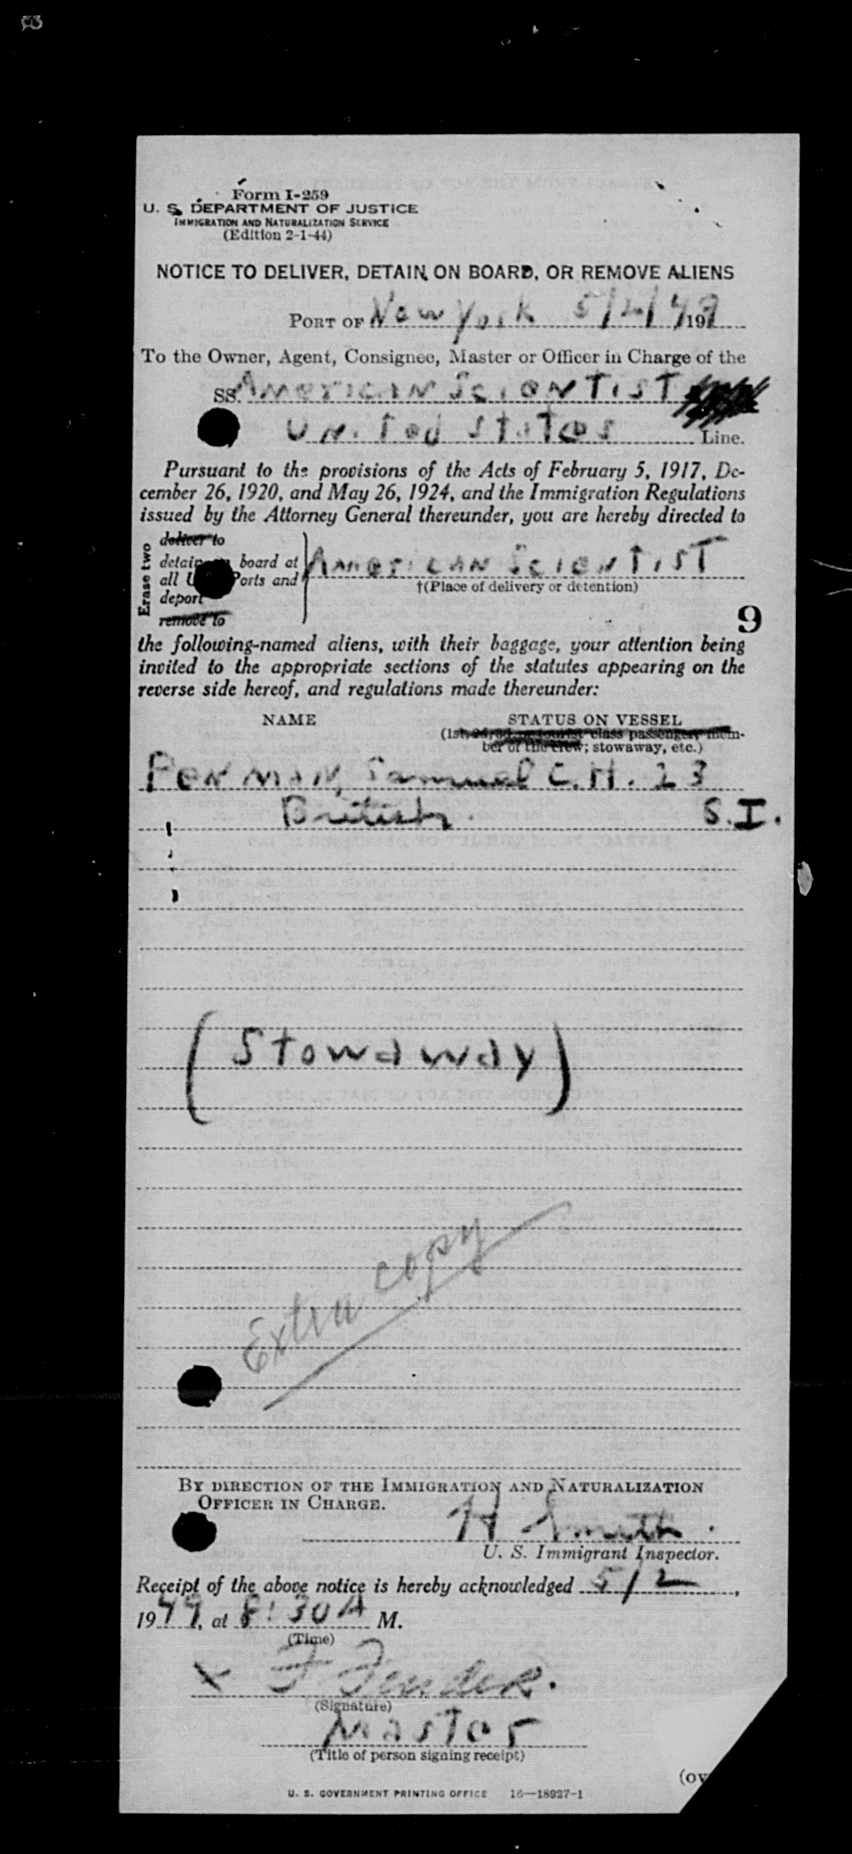 Form I-259
U. S. DEPARTMENT OF JUSTICE
IMMIGRATION AND NATURALIZATION SERVICE
(Edition 2-1-44)
NOTICE TO DELIVER, DETAIN ON BOARD, OR REMOVE ALIENS
PORT OF New York 5/2/49 19
To the Owner, Agent, Consignee, Master or Officer in Charge of the
SS. American Scientist
United States Line.
Pursuant to the provisions of the Acts of February 5, 1917, De-
cember 26, 1920, and May 26, 1924, and the Immigration Regulations
issued by the Attorney General thereunder, you are hereby directed to
Erase two
deliver to
detain on board at
all U. S. Ports and
deport
remove to
American Scientist
†(Place of delivery or detention)
9
the following-named aliens, with their baggage, your attention being
invited to the appropriate sections of the statutes appearing on the
reverse side hereof, and regulations made thereunder:
NAME STATUS ON VESSEL
(1st, 2d, 3d, or tourist class passenger; mem-
ber of the crew; stowaway, etc.)
PENMAN, Samuel C. H. 23
British. S.I.
(Stowaway)
Extra copy
BY DIRECTION OF THE IMMIGRATION AND NATURALIZATION
OFFICER IN CHARGE.
H Smith.
U. S. Immigrant Inspector.
Receipt of the above notice is hereby acknowledged 5/2,
1949, at 8:30 A M.
(Time)
X F
(Signature)
Master
(Title of person signing receipt)
(ov
U. S. GOVERNMENT PRINTING OFFICE 16—18927-1